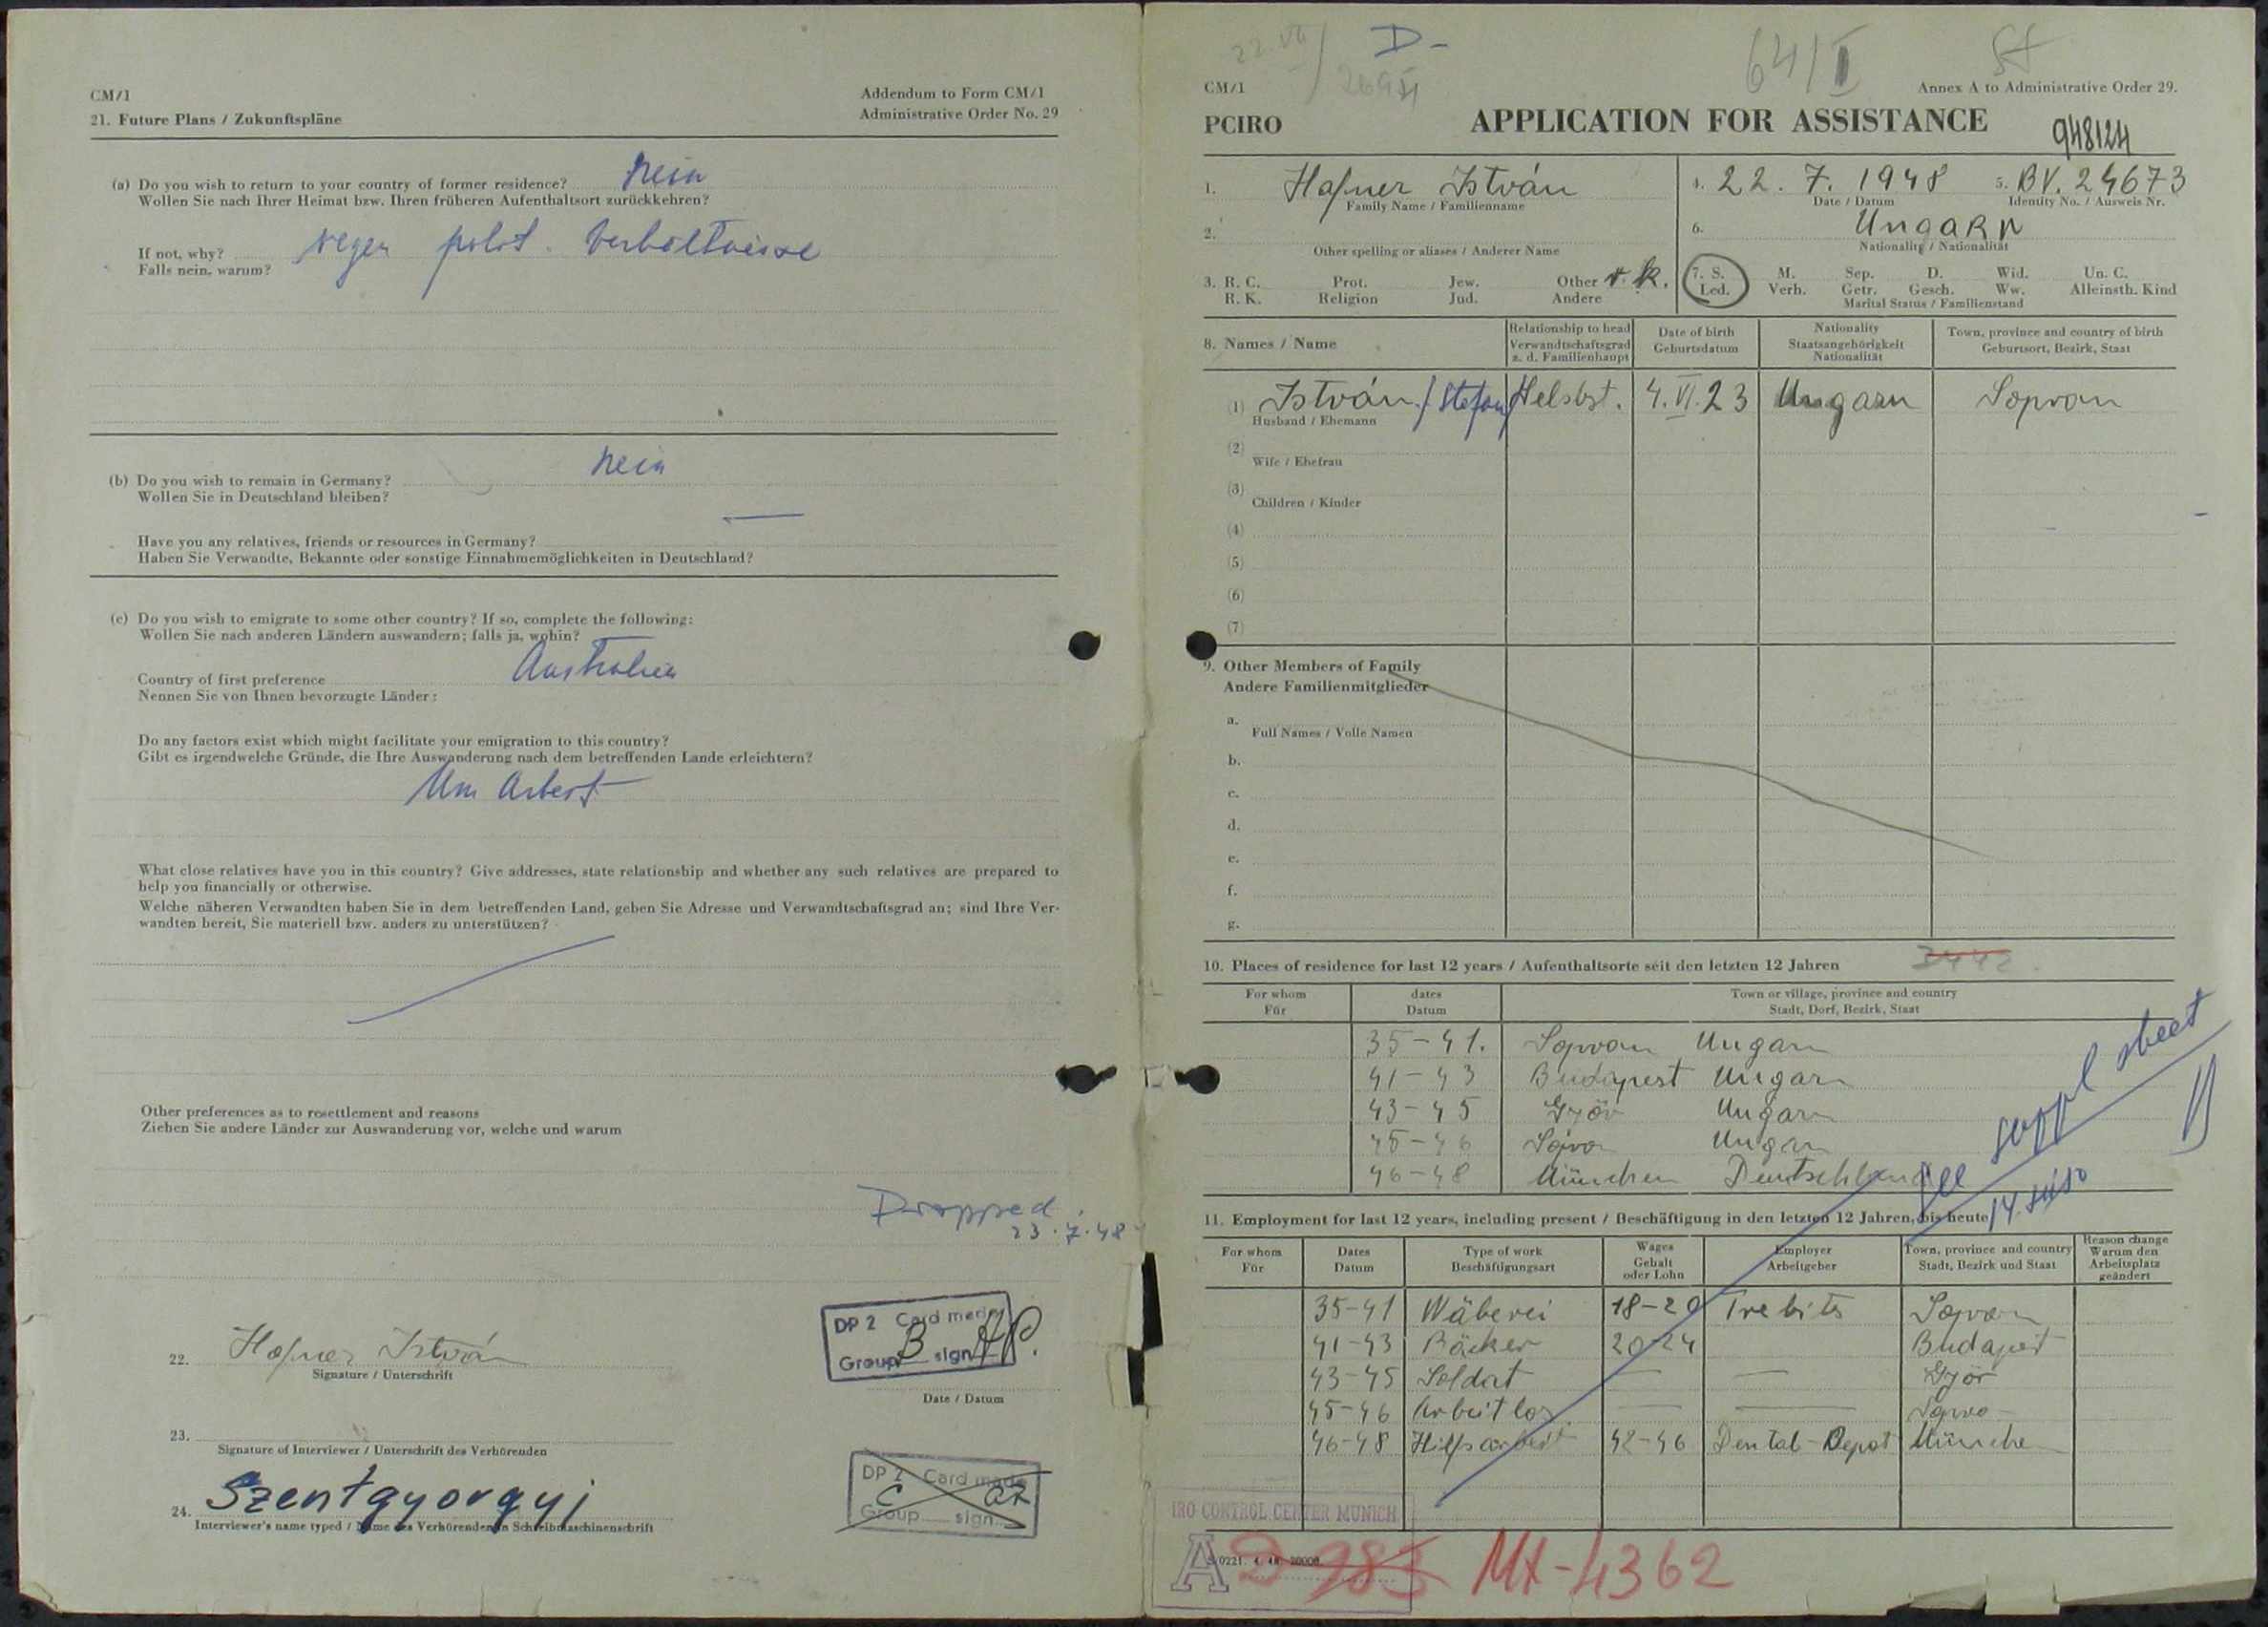 CM/1
Addendum to Form CM/1
Administrative Order No. 29
21. Future Plans / Zukunftspläne
(a) Do you wish to return to your country of former residence? Nein
Wollen Sie nach Ihrer Heimat bzw. Ihren früheren Aufenthaltsort zurückkehren?
If not, why? wegen polit. Verhältnisse
Falls nein, warum?
(b) Do you wish to remain in Germany? Nein
Wollen Sie in Deutschland bleiben?
Have you any relatives, friends or resources in Germany? —
Haben Sie Verwandte, Bekannte oder sonstige Einnahmemöglichkeiten in Deutschland?
(c) Do you wish to emigrate to some other country? If so, complete the following:
Wollen Sie nach anderen Ländern auswandern; falls ja, wohin?
Country of first preference Australien
Nennen Sie von Ihnen bevorzugte Länder:
Do any factors exist which might facilitate your emigration to this country?
Gibt es irgendwelche Gründe, die Ihre Auswanderung nach dem betreffenden Lande erleichtern?
Um Arbeit
What close relatives have you in this country? Give addresses, state relationship and whether any such relatives are prepared to
help you financially or otherwise.
Welche näheren Verwandten haben Sie in dem betreffenden Land, geben Sie Adresse und Verwandtschaftsgrad an; sind Ihre Ver-
wandten bereit, Sie materiell bzw. anders zu unterstützen?
Other preferences as to resettlement and reasons
Ziehen Sie andere Länder zur Auswanderung vor, welche und warum
Dropped
23.7.48
DP 2 Card made
Group B sign
22. Hafner István
Signature / Unterschrift
Date / Datum
23.
Signature of Interviewer / Unterschrift des Verhörenden
DP 2 Card made
Group C sign
24. Szentgyorgyi
Interviewer's name typed / Name des Verhörenden in Schreibmaschinenschrift
22. VII
D-
64/I
CM/1
Annex A to Administrative Order 29.
PCIRO
APPLICATION FOR ASSISTANCE
948124
1. Hafner István
Family Name / Familienname
4. 22. 7. 1948
Date / Datum
5. BV. 24673
Identity No. / Ausweis Nr.
2.
Other spelling or aliases / Anderer Name
6. Ungarn
Nationality / Nationalität
3. R. C. Prot. Jew. Other r. k.
R. K. Religion Jud. Andere
7. S. M. Sep. D. Wid. Un. C.
Led. Verh. Getr. Gesch. Ww. Alleinsth. Kind
Marital Status / Familienstand
8. Names / Name
Relationship to head
Verwandtschaftsgrad
z. d. Familienhaupt
Date of birth
Geburtsdatum
Nationality
Staatsangehörigkeit
Nationalität
Town, province and country of birth
Geburtsort, Bezirk, Staat
(1) István / Stefan Selbst. 4. VI. 23 Ungarn Sopron
Husband / Ehemann
(2)
Wife / Ehefrau
(3)
Children / Kinder
(4)
(5)
(6)
(7)
9. Other Members of Family
Andere Familienmitglieder
a.
Full Names / Volle Namen
b.
c.
d.
e.
f.
g.
10. Places of residence for last 12 years / Aufenthaltsorte seit den letzten 12 Jahren
3442
For whom
Für
dates
Datum
Town or village, province and country
Stadt, Dorf, Bezirk, Staat
35-41. Sopron Ungarn
41-43 Budapest Ungarn
43-45 Györ Ungarn
45-46 Sopron Ungarn
46-48 München Deutschland
see suppl sheet
11. Employment for last 12 years, including present / Beschäftigung in den letzten 12 Jahren, bis heute
For whom
Für
Dates
Datum
Type of work
Beschäftigungsart
Wages
Gehalt
oder Lohn
Employer
Arbeitgeber
Town, province and country
Stadt, Bezirk und Staat
Reason change
Warum den
Arbeitsplatz
geändert
35-41 Wäberei 18-20 Trebits Sopron
41-43 Bäcker 20-24 Budapest
43-45 Soldat — — Györ
45-46 Arbeitlos. — — Sopro
46-48 Hilfsarbeit 42-46 Dental-Depot München
IRO CONTROL CENTER MUNICH
A
D 983 MX-4362